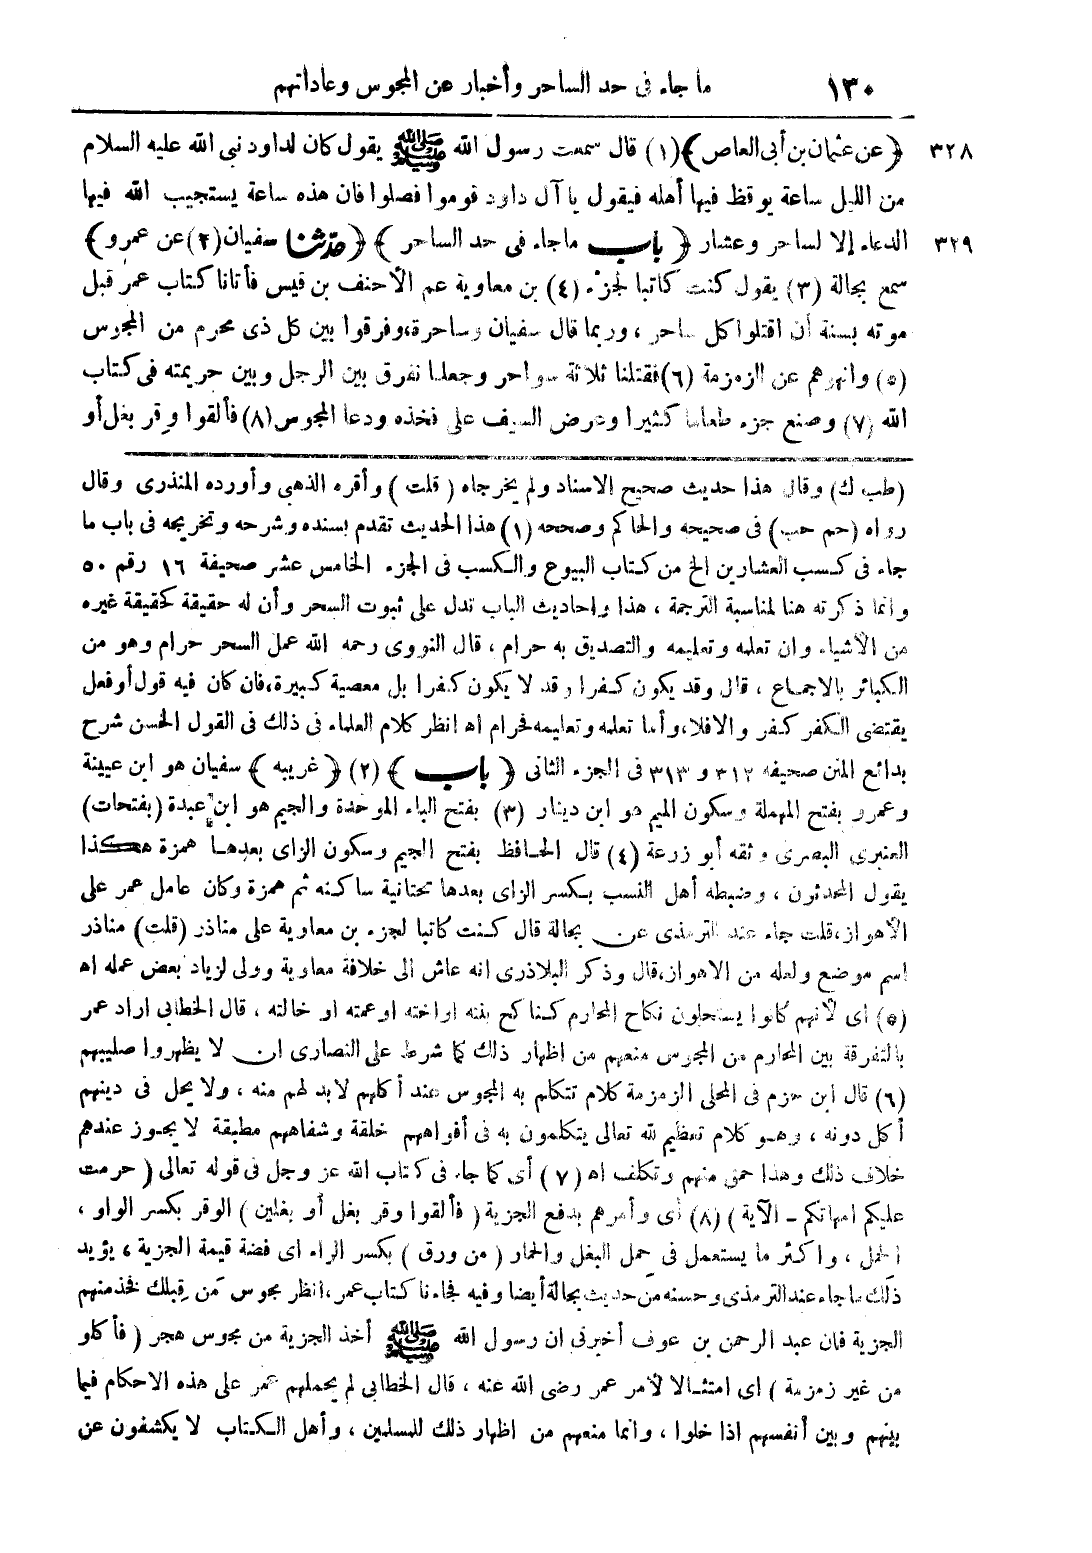 ١٣٠ ما جاء فى حد الساحر وأخبار عن المجوس وعاداتهم
٣٢٨ ﴿ عن عثمان بن أبى العاص ﴾(١) قال سمعت رسول الله ﷺ يقول كان لداود نبى الله عليه السلام
من الليل ساعة يوقظ فيها أهله فيقول يا آل داود قوموا فصلوا فان هذه ساعة يستجيب الله فيها
٣٢٩ الدعاء إلا لساحر وعشار ﴿ باب ماجاء فى حد الساحر ﴾ ﴿ حدثنا سفيان(٢)عن عمرو ﴾
سمع بجالة (٣) يقول كنت كاتبا لجزء (٤) بن معاوية عم الأحنف بن قيس فأتانا كتاب عمر قبل
موته بسنة أن اقتلوا كل ساحر ، وربما قال سفيان وساحرة،وفرقوا بين كل ذى محرم من المجوس
(٥) وانهوهم عن الزمزمة (٦)فقتلنا ثلاثة سواحر وجعلنا نفرق بين الرجل وبين حريمته فى كتاب
الله (٧) وصنع جزء طعاما كثيرا وعرض السيف على فخذه ودعا المجوس(٨)فألقوا وقر بغل أو
(طب ك) وقال هذا حديث صحيح الاسناد ولم يخرجاه ( قلت ) وأقره الذهبى وأورده المنذرى وقال
رواه (حم حب) فى صحيحه والحاكم وصححه (١) هذا الحديث تقدم بسنده وشرحه وتخريجه فى باب ما
جاء فى كسب العشارين الخ من كتاب البيوع والكسب فى الجزء الخامس عشر صحيفة ١٦ رقم ٥٠
وانما ذكرته هنا لمناسبة الترجمة ، هذا واحاديث الباب تدل على ثبوت السحر وأن له حقيقة كحقيقة غيره
من الأشياء وان تعلمه وتعليمه والتصديق به حرام ، قال النووى رحمه الله عمل السحر حرام وهو من
الكبائر بالاجماع ، قال وقد يكون كفرا وقد لا يكون كفرا بل معصية كبيرة،فان كان فيه قول أوفعل
يقتضى الكفر كفر والافلا،وأما تعلمه وتعليمه فحرام اه انظر كلام العلماء فى ذلك فى القول الحسن شرح
بدائع المنن صحيفه ٣١٢ و ٣١٣ فى الجزء الثانى ﴿ باب ﴾ (٢) ﴿ غريبه ﴾ سفيان هو ابن عيينة
وعمرو بفتح المهملة وسكون الميم هو ابن دينار (٣) بفتح الباء الموحدة والجيم هو ابن عبدة (بفتحات)
العنبرى البصرى وثقه أبو زرعة (٤) قال الحافظ بفتح الجيم وسكون الزاى بعدها همزة هكذا
يقول المحدثون ، وضبطه أهل النسب بكسر الزاى بعدها تحتانية ساكنه ثم همزة وكان عامل عمر على
الأهواز،قلت جاء عند الترمذى عن بجالة قال كنت كاتبا لجزء بن معاوية على مناذر (قلت) مناذر
اسم موضع ولعله من الاهواز،قال وذكر البلاذرى انه عاش الى خلافة معاوية وولى لزياد بعض عمله اه
(٥) اى لأنهم كانوا يستحلون نكاح المحارم كناكح بنته اواخته اوعمته او خالته ، قال الخطابى اراد عمر
بالتفرقة بين المحارم من المجوس منعهم من اظهار ذلك كما شرط على النصارى ان لا يظهروا صليبهم
(٦) قال ابن حزم فى المحلى الزمزمة كلام تتكلم به المجوس عند أكلهم لابد لهم منه ، ولا يحل فى دينهم
أكل دونه ، وهو كلام تعظيم لله تعالى يتكلمون به فى أفواههم خلقة وشفاههم مطبقة لا يجوز عندهم
خلاف ذلك وهذا حمق منهم وتكلف اه (٧) أى كما جاء فى كتاب الله عز وجل فى قوله تعالى ( حرمت
عليكم امهاتكم ــ الآية ) (٨) أى وأمرهم بدفع الجزية ( فألقوا وقر بغل أو بغلين ) الوقر بكسر الواو ،
الحمل ، واكثر ما يستعمل فى حمل البغل والحمار ( من ورق ) بكسر الراء اى فضة قيمة الجزية ، يؤيد
ذلك ما جاء عند الترمذى وحسنه من حديث بجالة أيضا وفيه فجاءنا كتاب عمر،انظر مجوس من قبلك فخذ منهم
الجزية فان عبد الرحمن بن عوف أخبرنى ان رسول الله ﷺ أخذ الجزية من مجوس هجر ( فأكلو
من غير زمزمة ) اى امتثالا لأمر عمر رضى الله عنه ، قال الخطابى لم يحملهم عمر على هذه الاحكام فيما
بينهم وبين أنفسهم اذا خلوا ، وانما منعهم من اظهار ذلك للمسلمين ، وأهل الكتاب لا يكشفون عن